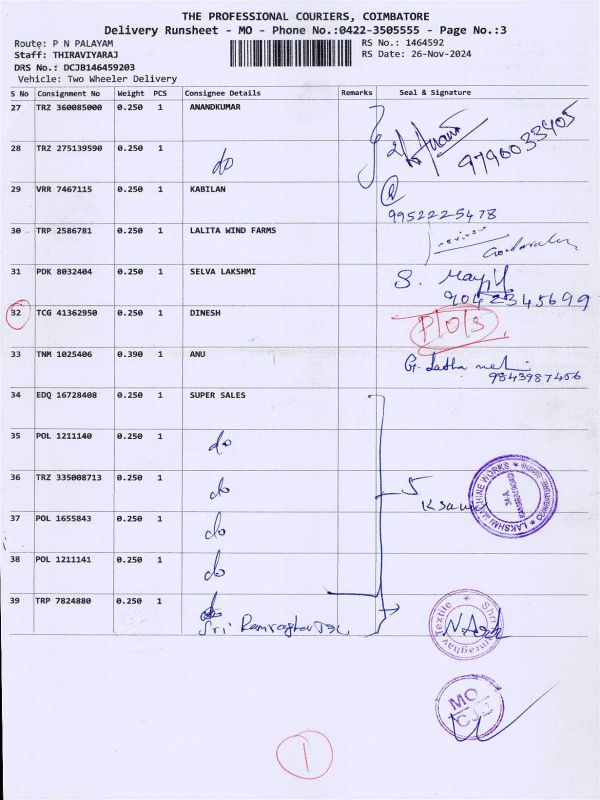 THE PROFESSIONAL COURIERS, COIMBATORE
Delivery Runsheet - MO - Phone No.:0422-3505555 - Page No.:3
Route: P N PALAYAM RS No.: 1464592
Staff: THIRAVIYARAJ RS Date: 26-Nov-2024
DRS No.: DCJB146459203
Vehicle: Two Wheeler Delivery
S No Consignment No Weight PCS Consignee Details Remarks Seal & Signature
27 TRZ 360085000 0.250 1 ANANDKUMAR
9796033405
28 TRZ 275139590 0.250 1 do
29 VRR 7467115 0.250 1 KABILAN
9952225478
30 TRP 2586781 0.250 1 LALITA WIND FARMS
31 PDK 8032404 0.250 1 SELVA LAKSHMI S.
9042345699
32 TCG 41362950 0.250 1 DINESH P/O/S
33 TNM 1025406 0.390 1 ANU G. Latha
9843987456
34 EDQ 16728408 0.250 1 SUPER SALES
35 POL 1211140 0.250 1 do
36 TRZ 335008713 0.250 1 do 5
LAKSHMI MACHINE WORKS
37 POL 1655843 0.250 1 do
38 POL 1211141 0.250 1 do
39 TRP 7824880 0.250 1
Sri Ramraghav Tex
Textile * Shri
MO
CJJ
1